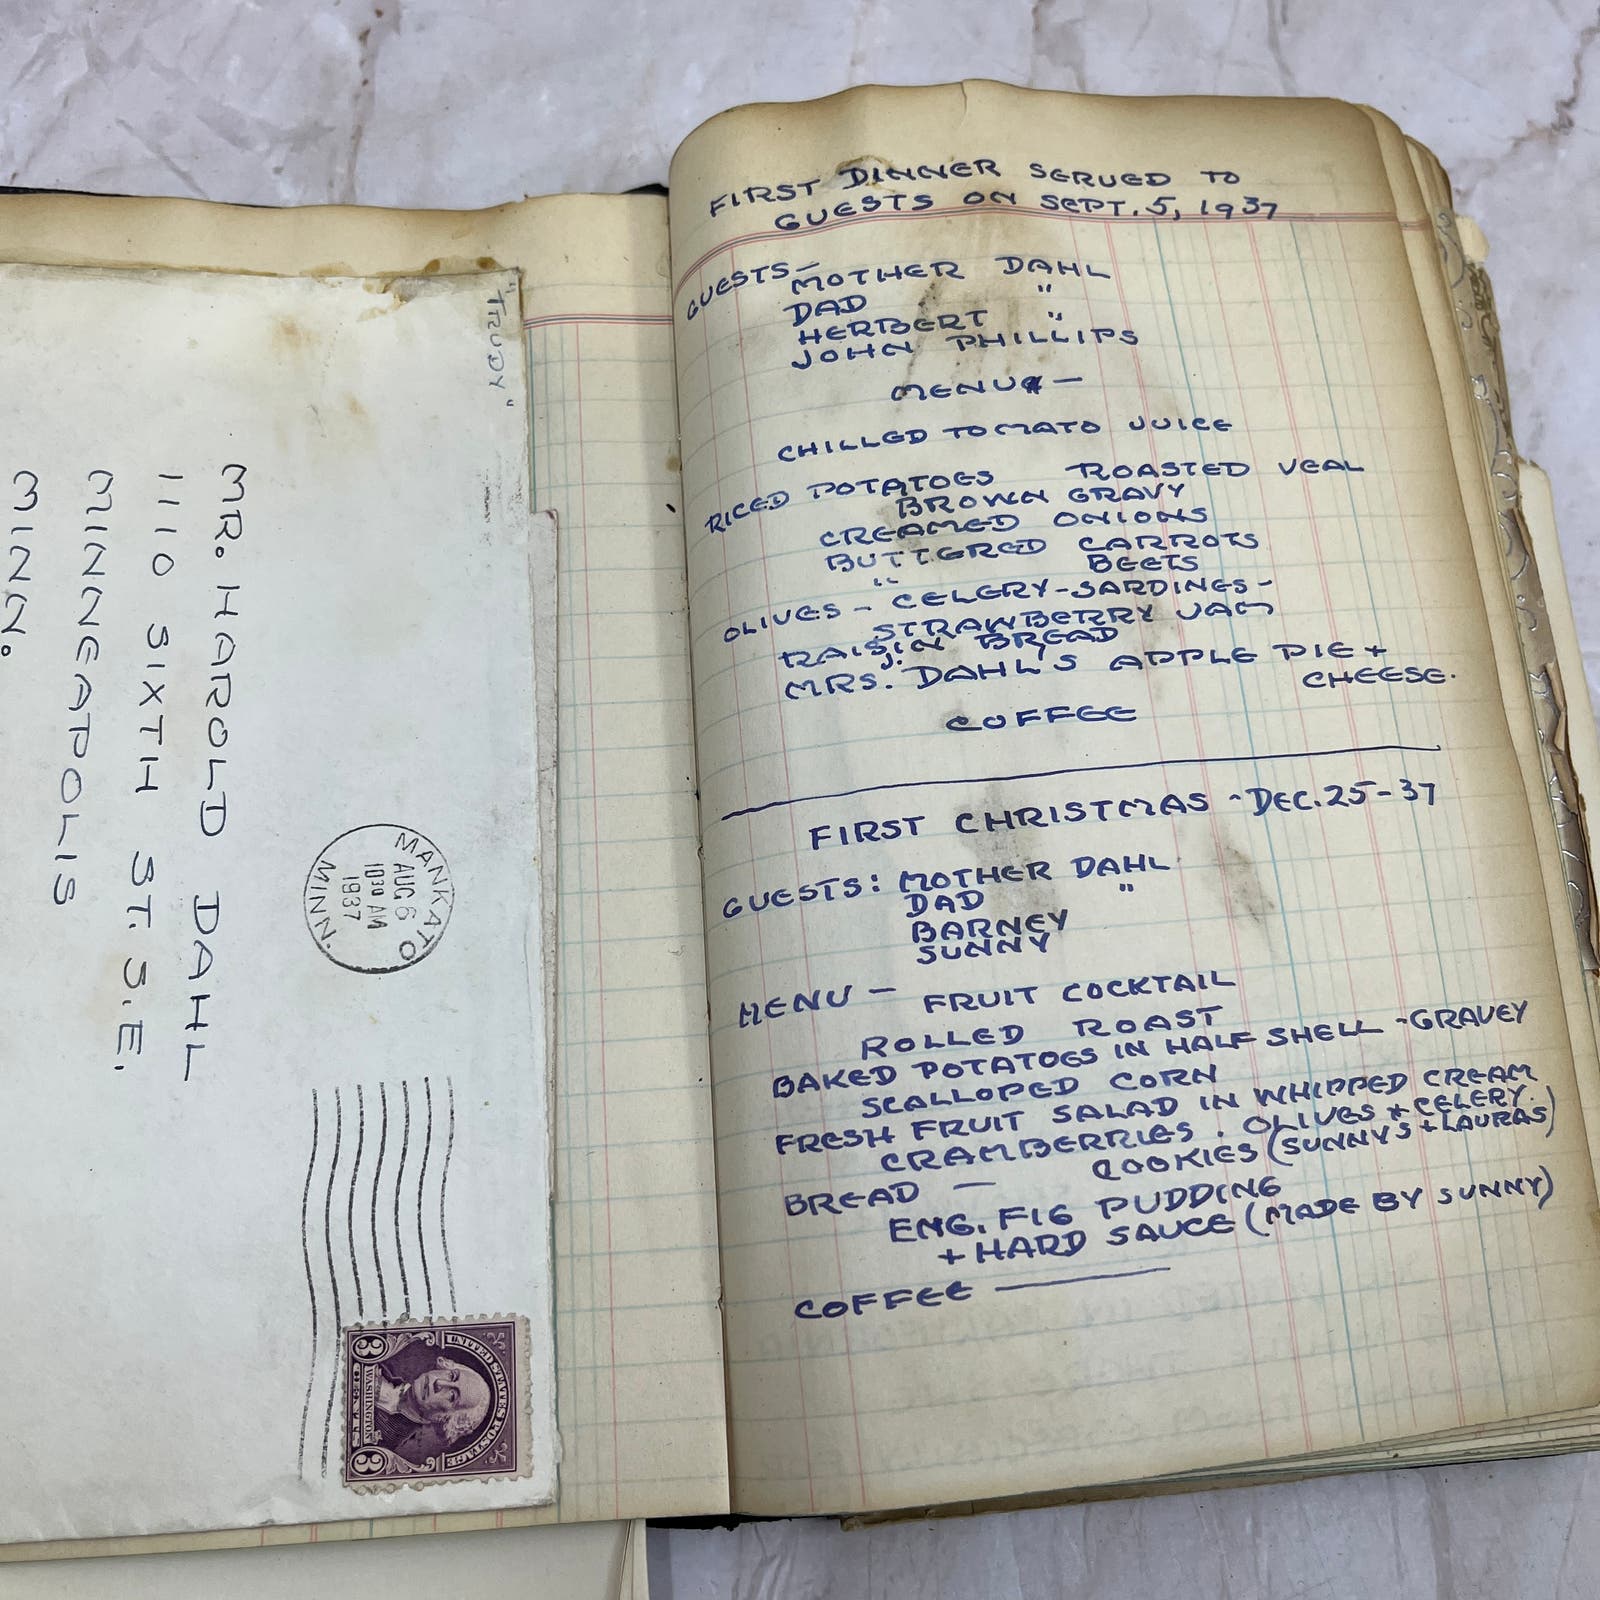 "TRUDY"
MR. HAROLD DAHL
1110 SIXTH ST. S.E.
MINNEAPOLIS
MINN.
MANKATO
AUG 6
10 30 AM
1937
MINN.
UNITED STATES POSTAGE
WASHINGTON
3 CENTS 3
FIRST DINNER SERVED TO
GUESTS ON SEPT. 5, 1937
GUESTS— MOTHER DAHL
DAD "
HERBERT "
JOHN PHILLIPS
MENU —
CHILLED TOMATO JUICE
RICED POTATOES ROASTED VEAL
BROWN GRAVY
CREAMED ONIONS
BUTTERED CARROTS
" BEETS
OLIVES - CELERY-SARDINES-
STRAWBERRY JAM
RAISIN BREAD
MRS. J. DAHL'S APPLE PIE +
CHEESE.
COFFEE
FIRST CHRISTMAS - DEC. 25-37
GUESTS: MOTHER DAHL
DAD "
BARNEY
SUNNY
MENU — FRUIT COCKTAIL
ROLLED ROAST
BAKED POTATOES IN HALF SHELL - GRAVEY
SCALLOPED CORN
FRESH FRUIT SALAD IN WHIPPED CREAM
CRAMBERRIES. OLIVES + CELERY.
BREAD — COOKIES (SUNNYS + LAURAS)
ENG. FIG PUDDING
+ HARD SAUCE (MADE BY SUNNY)
COFFEE —